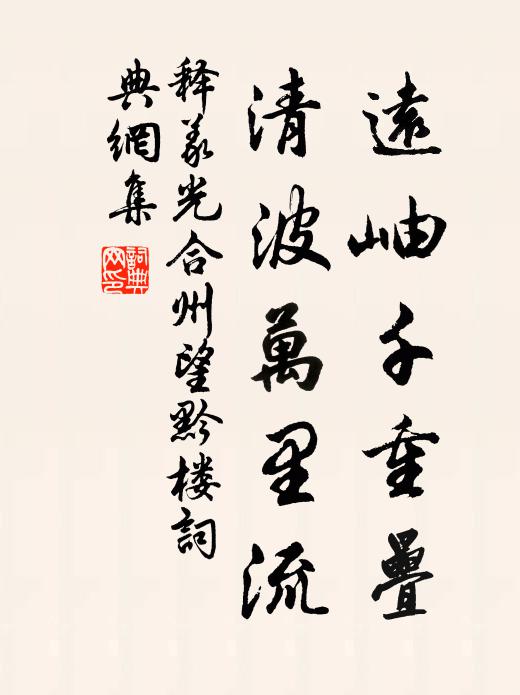 遠岫千重疊
清波萬里流
释義光合州望黔楼詞
典網集
詞典
网印